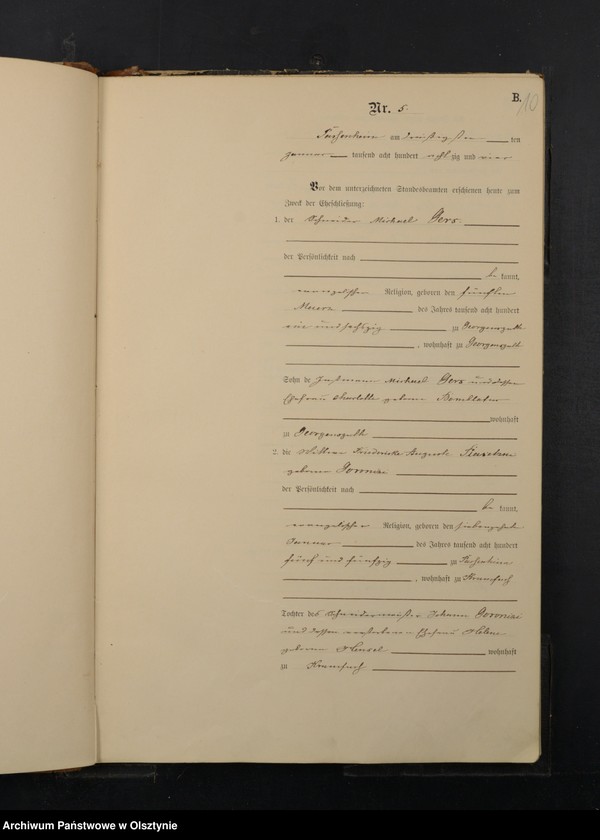 B.
10
Nr. 5.
am dreißigsten ten
Januar tausend acht hundert achtzig und vier
Vor dem unterzeichneten Standesbeamten erschienen heute zum
Zweck der Eheschließung:
1. der Schneider Michael Gers
der Persönlichkeit nach
be kannt,
evangelischer Religion, geboren den fünften
Maerz des Jahres tausend acht hundert
ein und sechszig zu Georgensguth
, wohnhaft zu Georgensguth
Sohn de Instmann Michael Gers und dessen
Ehefrau Charlotte geborene
wohnhaft
zu Georgensguth
2. die Wittwe Friedricke Auguste
geborene
der Persönlichkeit nach
be kannt,
evangelischer Religion, geboren den siebenzehnten
Januar des Jahres tausend acht hundert
fünf und fünfzig zu
, wohnhaft zu
Tochter des Schneidermeister Johann
und dessen verstorbenen Ehefrau
geborene wohnhaft
zu
Archiwum Państwowe w Olsztynie